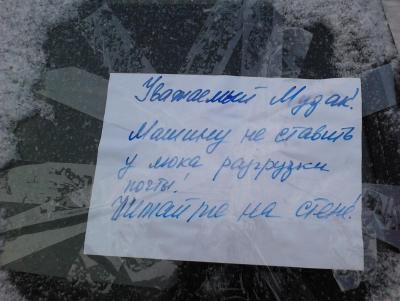 Уважаемый Мудак!
Машину не ставить
у люка разгрузки
почты!
Читайте на стене!